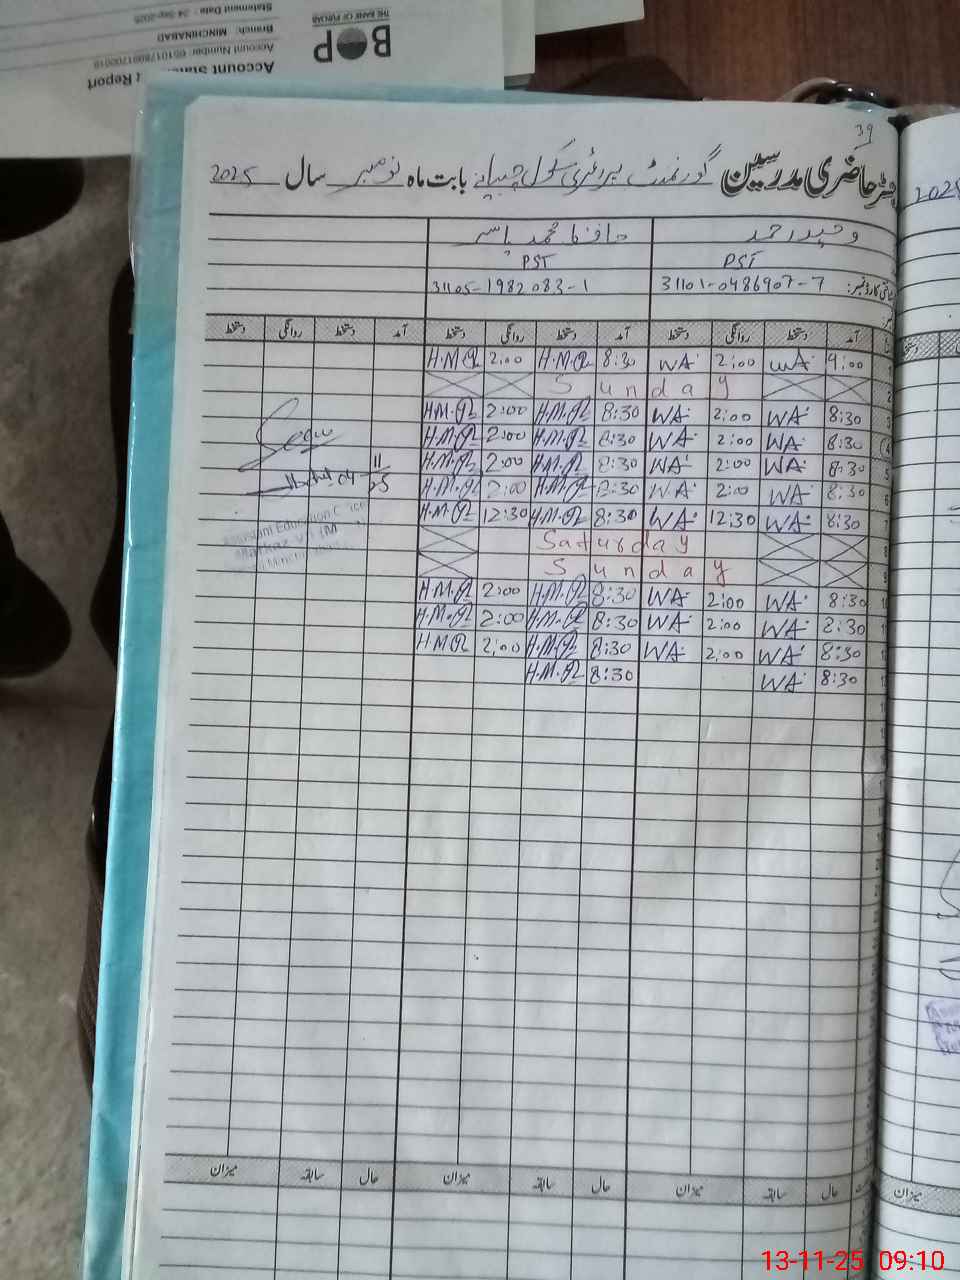 Account Number: 
Branch: MINCHINABAD
Statement Date : 24-Sep-2025
BOP
THE BANK OF PUNJAB
39
رجسٹر حاضری مدرسین گورنمنٹ پرائمری سکول بابت ماہ نومبر سال 2025
وحید احمد حافظ محمد یاسر
PST PST
شناختی کارڈ نمبر: 31101-0486907-7 31105-1982083-1
آمد دستخط روانگی دستخط آمد دستخط روانگی دستخط آمد دستخط روانگی دستخط
1 9:00 WA 2:00 WA 8:30 H.M.Q 2:00 H.M.Q
2 Sunday
3 8:30 WA 2:00 WA 8:30 H.M.Q 2:00 H.M.Q
4 8:30 WA 2:00 WA 8:30 H.M.Q 2:00 H.M.Q
5 8:30 WA 2:00 WA 8:30 H.M.Q 2:00 H.M.Q
6 8:30 WA 2:00 WA 8:30 H.M.Q 2:00 H.M.Q
7 8:30 WA 12:30 WA 8:30 H.M.Q 12:30 H.M.Q
8 Saturday
9 Sunday
10 8:30 WA 2:00 WA 8:30 H.M.Q 2:00 H.M.Q
11 8:30 WA 2:00 WA 8:30 H.M.Q 2:00 H.M.Q
12 8:30 WA 2:00 WA 8:30 H.M.Q 2:00 H.M.Q
13 8:30 WA 8:30 H.M.Q
Assistant Education
Markaz
حال سابقہ میزان حال سابقہ میزان حال سابقہ میزان
میزان
13-11-25 09:10